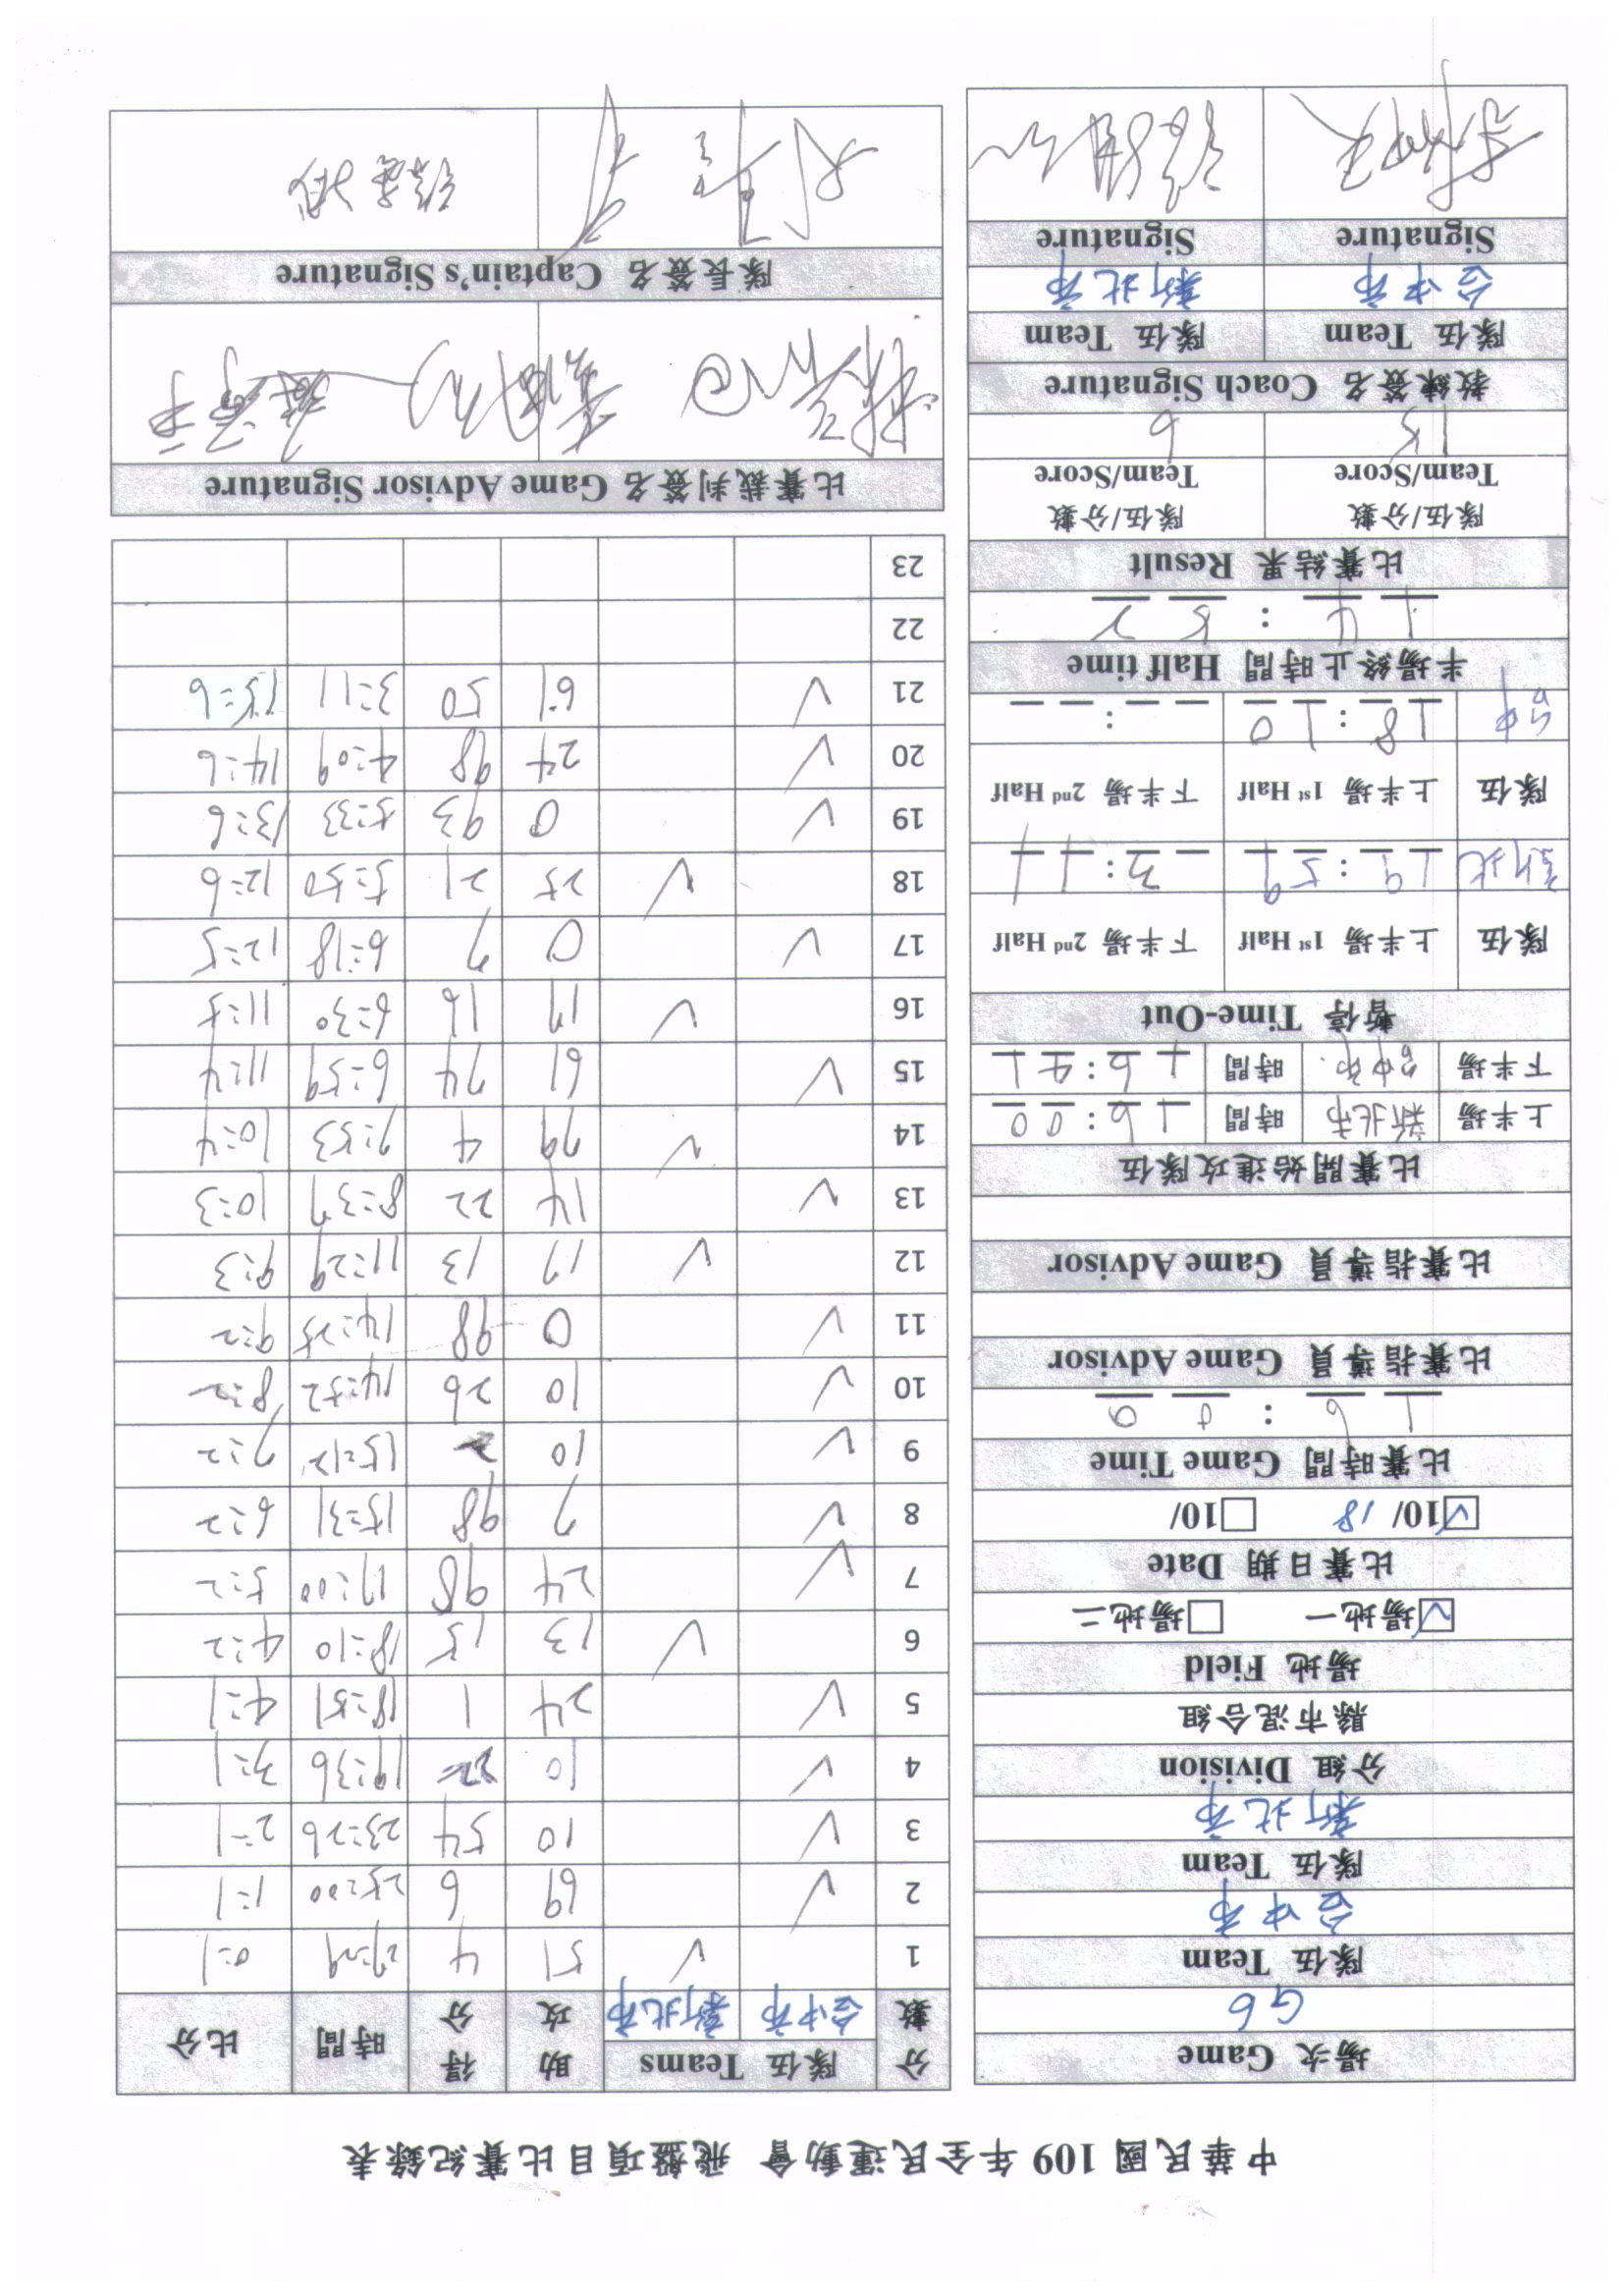 中華民國 109 年全民運動會 飛盤項目比賽紀錄表
場次 Game
G6
隊伍 Team
台中市
隊伍 Team
新北市
分組 Division
縣市混合組
場地 Field
☑場地一 ☐場地二
比賽日期 Date
☑10/ 18 ☐10/
比賽時間 Game Time
16:00
比賽指導員 Game Advisor
比賽指導員 Game Advisor
比賽開始進攻隊伍
上半場 新北市 時間 16:00
下半場 台中市 時間 16:41
暫停 Time-Out
隊伍 上半場 1st Half 下半場 2nd Half
新北 19:59 3:11
隊伍 上半場 1st Half 下半場 2nd Half
台中 18:10 :
半場終止時間 Half time
14:52
比賽結果 Result
隊伍/分數 Team/Score 隊伍/分數 Team/Score
15 6
教練簽名 Coach Signature
隊伍 Team 隊伍 Team
台中市 新北市
Signature Signature
分數 隊伍 Teams 助攻 得分 時間 比分
台中市 新北市
1 ✓ 51 4 27:29 0:1
2 ✓ 69 6 25:00 1:1
3 ✓ 10 54 23:26 2:1
4 ✓ 10 22 19:36 3:1
5 ✓ 24 1 18:51 4:1
6 ✓ 13 15 18:10 4:2
7 ✓ 24 98 17:00 5:2
8 ✓ 7 98 15:31 6:2
9 ✓ 10 2 15:12 7:2
10 ✓ 10 26 14:52 8:2
11 ✓ 0 98 14:25 9:2
12 ✓ 17 13 11:29 9:3
13 ✓ 14 22 8:37 10:3
14 ✓ 79 4 7:53 10:4
15 ✓ 19 74 6:59 11:4
16 ✓ 17 16 6:30 11:5
17 ✓ 0 7 6:18 12:5
18 ✓ 25 21 5:50 12:6
19 ✓ 0 93 5:33 13:6
20 ✓ 24 98 4:09 14:6
21 ✓ 19 50 3:11 15:6
22
23
比賽裁判簽名 Game Advisor Signature
隊長簽名 Captain's Signature